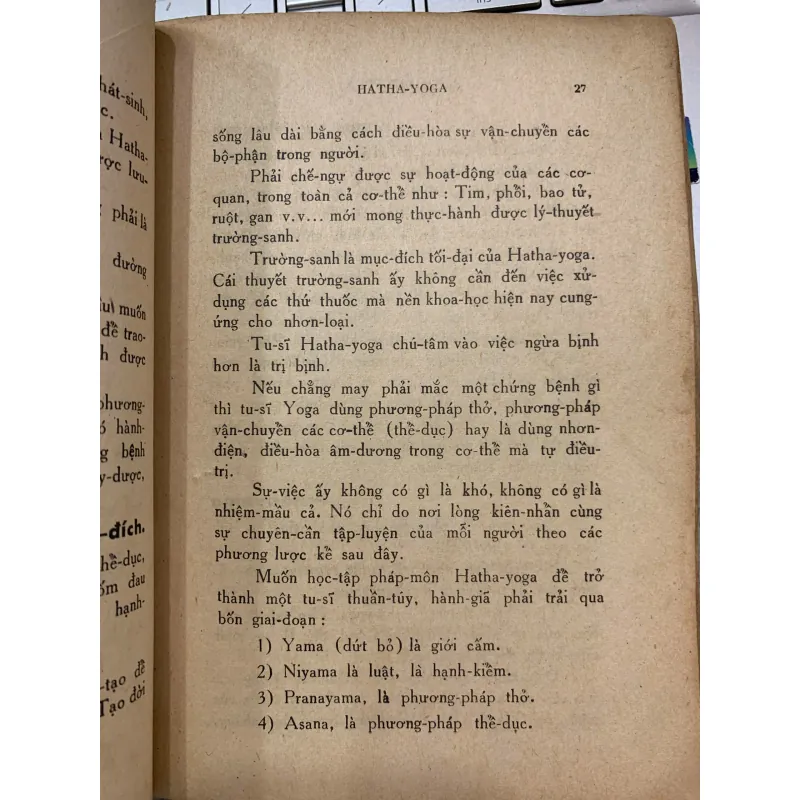 hát-sinh,
c.
Hatha-
ược lưu-
phải là
đường
muốn
đề trao-
h được
phương-
hành-
g bệnh
y-dược,
-đích.
hề-dục,
ốm đau
hạnh-
-tạo đề
Tạo đời
HATHA-YOGA 27
sống lâu dài bằng cách điều-hòa sự vận-chuyền các
bộ-phận trong người.
Phải chế-ngự được sự hoạt-động của các cơ-
quan, trong toàn cả cơ-thề như : Tim, phồi, bao tử,
ruột, gan v.v... mới mong thực-hành được lý-thuyết
trường-sanh.
Trường-sanh là mục-đích tối-đại của Hatha-yoga.
Cái thuyết trường-sanh ấy không cần đến việc xử-
dụng các thứ thuốc mà nền khoa-học hiện nay cung-
ứng cho nhơn-loại.
Tu-sĩ Hatha-yoga chú-tâm vào việc ngừa bịnh
hơn là trị bịnh.
Nếu chẳng may phải mắc một chứng bệnh gì
thì tu-sĩ Yoga dùng phương-pháp thở, phương-pháp
vận-chuyền các cơ-thề (thề-dục) hay là dùng nhơn-
điện, điều-hòa âm-dương trong cơ-thề mà tự điều-
trị.
Sự-việc ấy không có gì là khó, không có gì là
nhiệm-mầu cả. Nó chỉ do nơi lòng kiên-nhẫn cùng
sự chuyên-cần tập-luyện của mỗi người theo các
phương lược kề sau đây.
Muốn học-tập pháp-môn Hatha-yoga đề trở
thành một tu-sĩ thuần-túy, hành-giả phải trải qua
bốn giai-đoạn :
1) Yama (dứt bỏ) là giới cấm.
2) Niyama là luật, là hạnh-kiềm.
3) Pranayama, là phương-pháp thở.
4) Asana, là phương-pháp thề-dục.